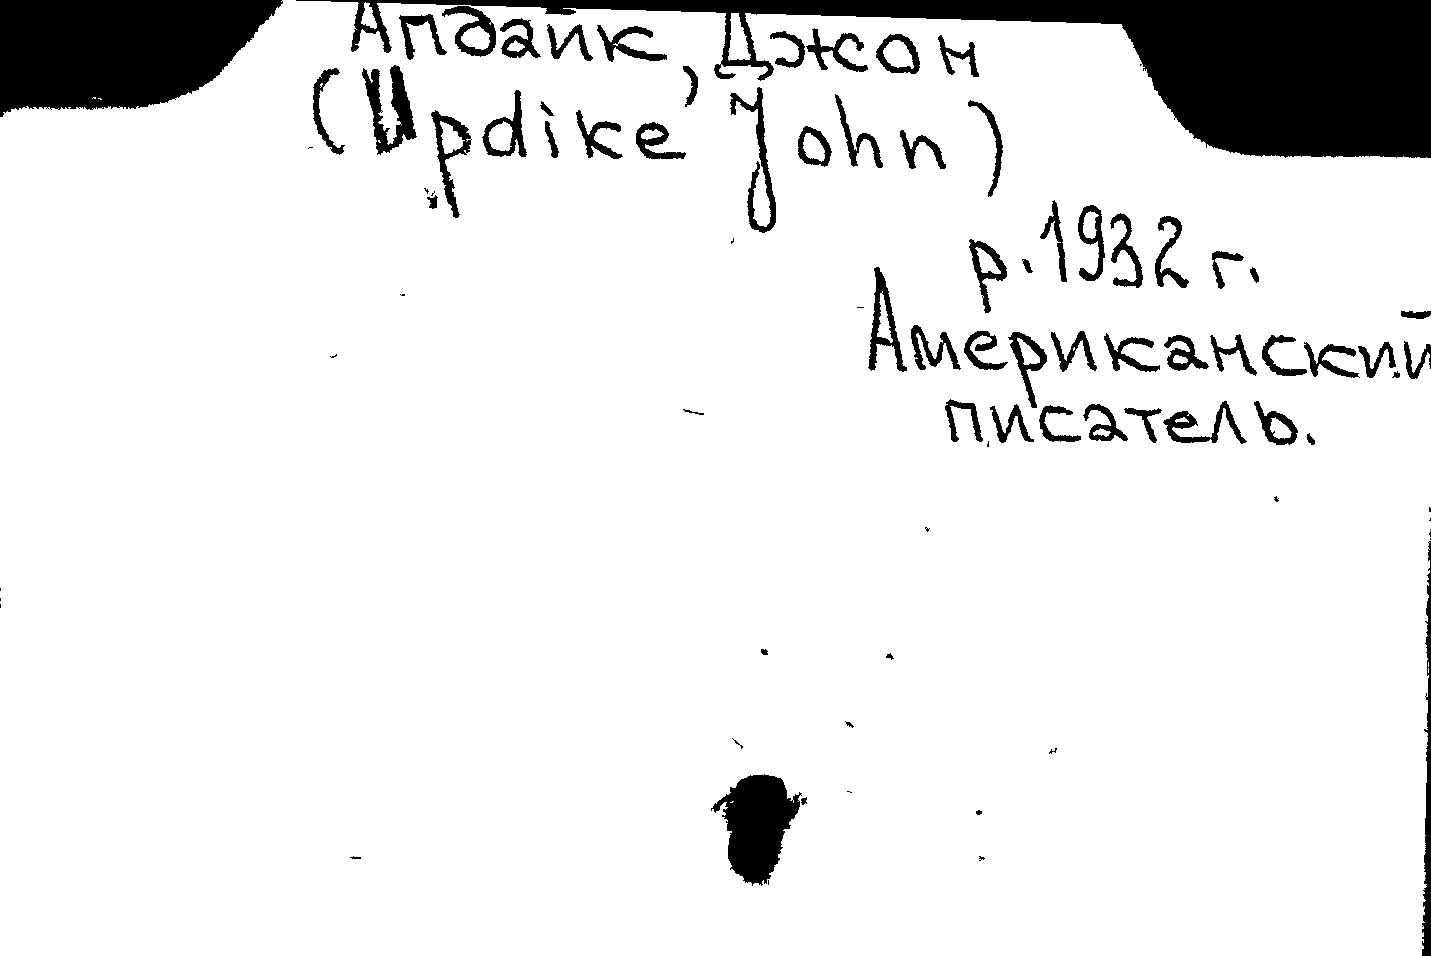 Апдайк, Джон
(Updike John)
р. 1932 г.
Американский
писатель.